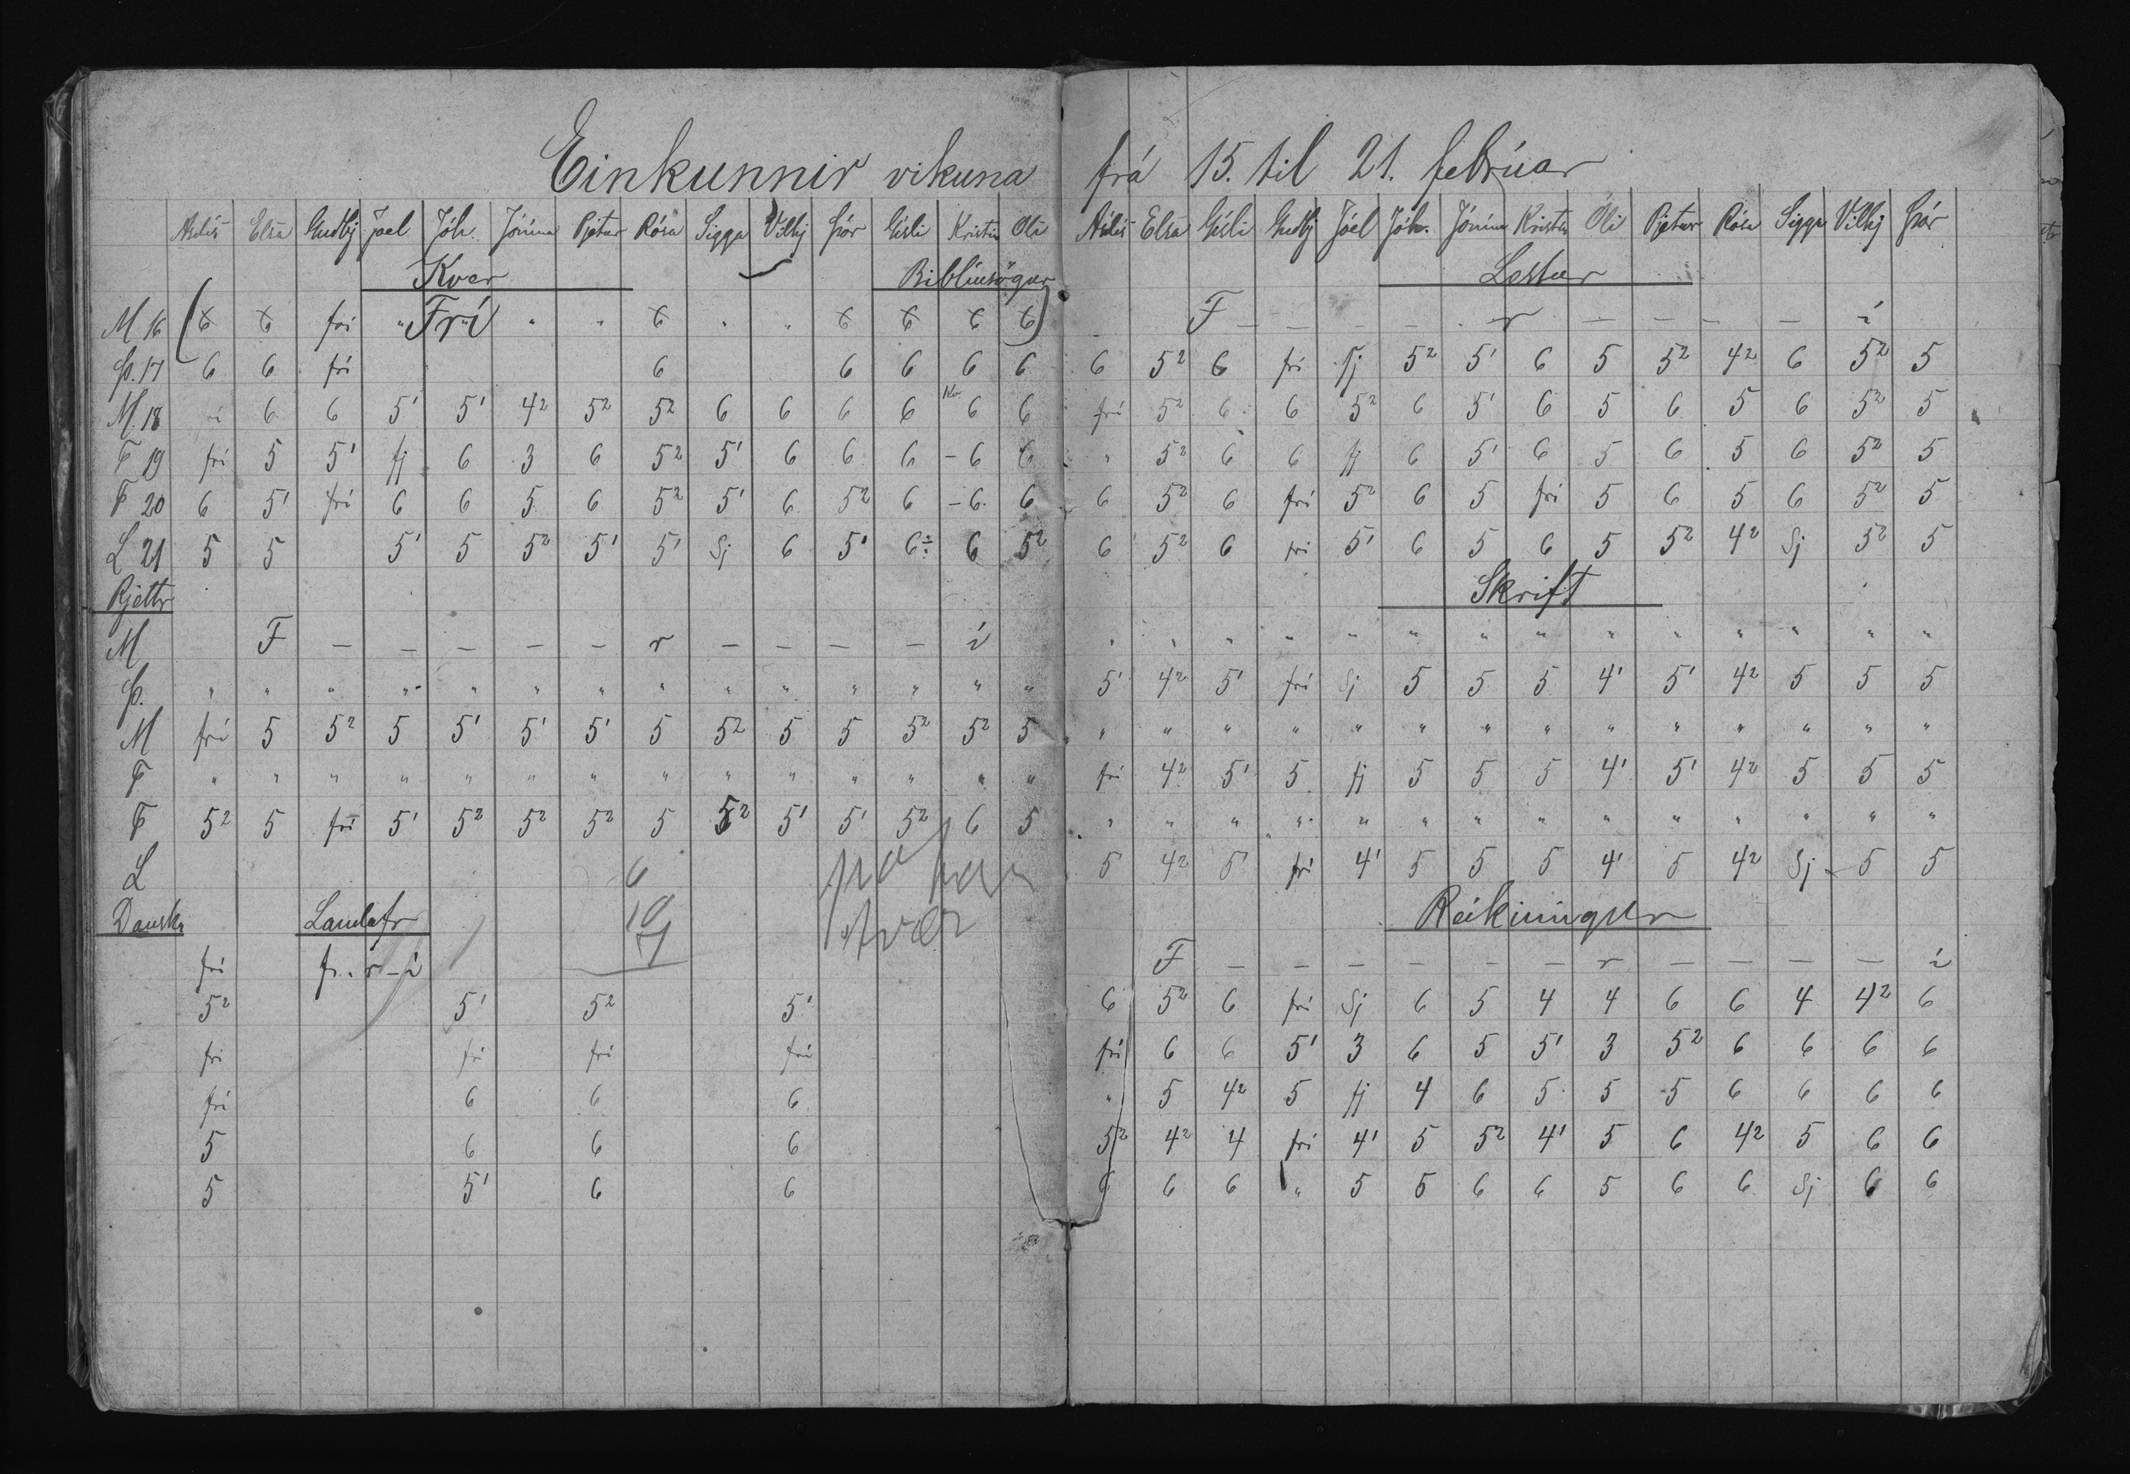 Einkunnir vikuna frá 15. til 21. febrúar
Ardís Elsa Guðbj Jóel Jóh. Jónína Pjetur Rósa Sigga Vilhj Þór Gísli Kristín Óli
Kver Biblíusögur
M 16 ( 6 6 frí " Frí " " 6 " " 6 6 6 6 )
Þ. 17 6 6 frí 6 6 6 6 6
M. 18 6 6 5¹ 5¹ 4² 5² 5² 6 6 6 6 Kv. 6 6
F 19 frí 5 5¹ fj 6 3 6 5² 5¹ 6 6 6 – 6 6
F 20 6 5¹ frí 6 6 5 6 5² 5¹ 6 5² 6 – 6 6
L 21 5 5 5¹ 5 5² 5¹ 5¹ Sj 6 5¹ 6÷ 6 5²
Rjettr
M F – – – – – r – – – – í
Þ. " " " " " " " " " " " " " "
M frí 5 5² 5 5¹ 5¹ 5¹ 5 5² 5 5 5² 5² 5
F " " " " " " " " " " " " " "
F 5² 5 frí 5¹ 5² 5² 5² 5 5² 5¹ 5¹ 5² 6 5
L 6
Danska Landafr 19
frí f – r – í
5² 5¹ 5² 5¹
frí frí frí frí
frí 6 6 6
5 6 6 6
5 5¹ 6 6
Ardís Elsa Gísli Guðbj Jóel Jóh. Jónína Kristín Óli Pjetur Rósa Sigga Vilhj Þór
Lestur
F – – – – r – – – – í
6 5² 6 frí fj 5² 5¹ 6 5 5² 4² 6 5² 5
frí 5² 6 6 5² 6 5¹ 6 5 6 5 6 5² 5
" 5² 6 6 fj 6 5¹ 6 5 6 5 6 5² 5
6 5² 6 frí 5² 6 5 frí 5 6 5 6 5² 5
6 5² 6 frí 5¹ 6 5 6 5 5² 4² Sj 5² 5
Skrift
" " " " " " " " " " " " " "
5¹ 4² 5¹ frí Sj 5 5 5 4¹ 5¹ 4² 5 5 5
" " " " " " " " " " " " " "
frí 4² 5¹ 5 fj 5 5 5 4¹ 5¹ 4² 5 5 5
" " " " " " " " " " " " " "
5 4² 5¹ frí 4¹ 5 5 5 4¹ 5 4² Sj 5 5
Reikningur
F – – – – – – r – – – – í
6 5² 6 frí Sj 6 5 4 4 6 6 4 4² 6
frí 6 6 5¹ 3 6 5 5¹ 3 5² 6 6 6 6
" 5 4² 5 fj 4 6 5 5 5 6 6 6 6
5² 4² 4 frí 4¹ 5 5² 4¹ 5 6 4² 5 6 6
6 6 6 " 5 5 6 6 5 6 6 Sj 6 6